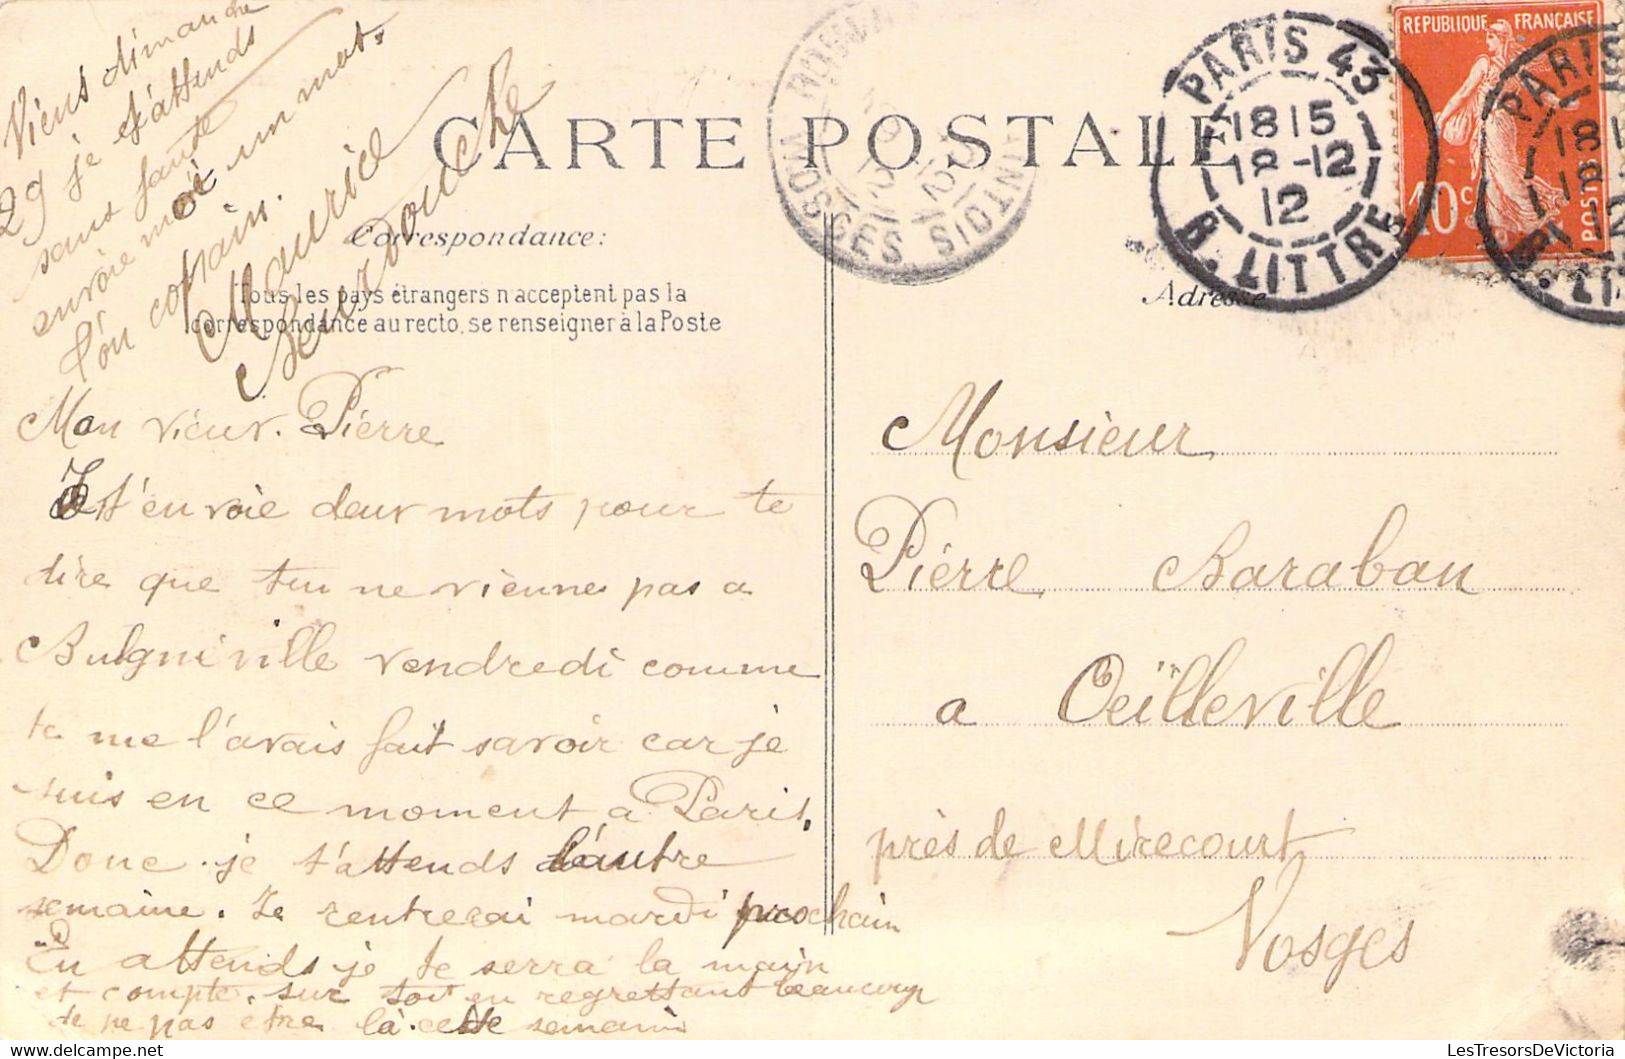 Viens dimanche
29 je t'attends
sans faute
envoie moi un mot.
t'on copain.
Maurice
CARTE POSTALE
Correspondance:
Tous les pays étrangers n'acceptent pas la
correspondance au recto, se renseigner à la Poste
Mon vieux. Pierre
Je t'envoie deux mots pour te
dire que tu ne viennes pas a
Bulgnéville vendredi comme
tu me l'avais fait savoir car je
suis en ce moment a Paris.
Donc je t'attends l'autre
semaine. Je rentrerai mardi prochain
En attends je te serra la main
et compte sur toi en regrettant beaucoup
de ne pas etre là cette semain
VOSGES
PARIS 43
1815
18-12
12
R. LITTRÉ
REPUBLIQUE FRANÇAISE
10c
POSTES
PARIS
18
18
12
R. LI
Adresse
Monsieur
Pierre Baraban
a Oeïlleville
près de Mirecourt
Vosges
LesTresorsDeVictoria